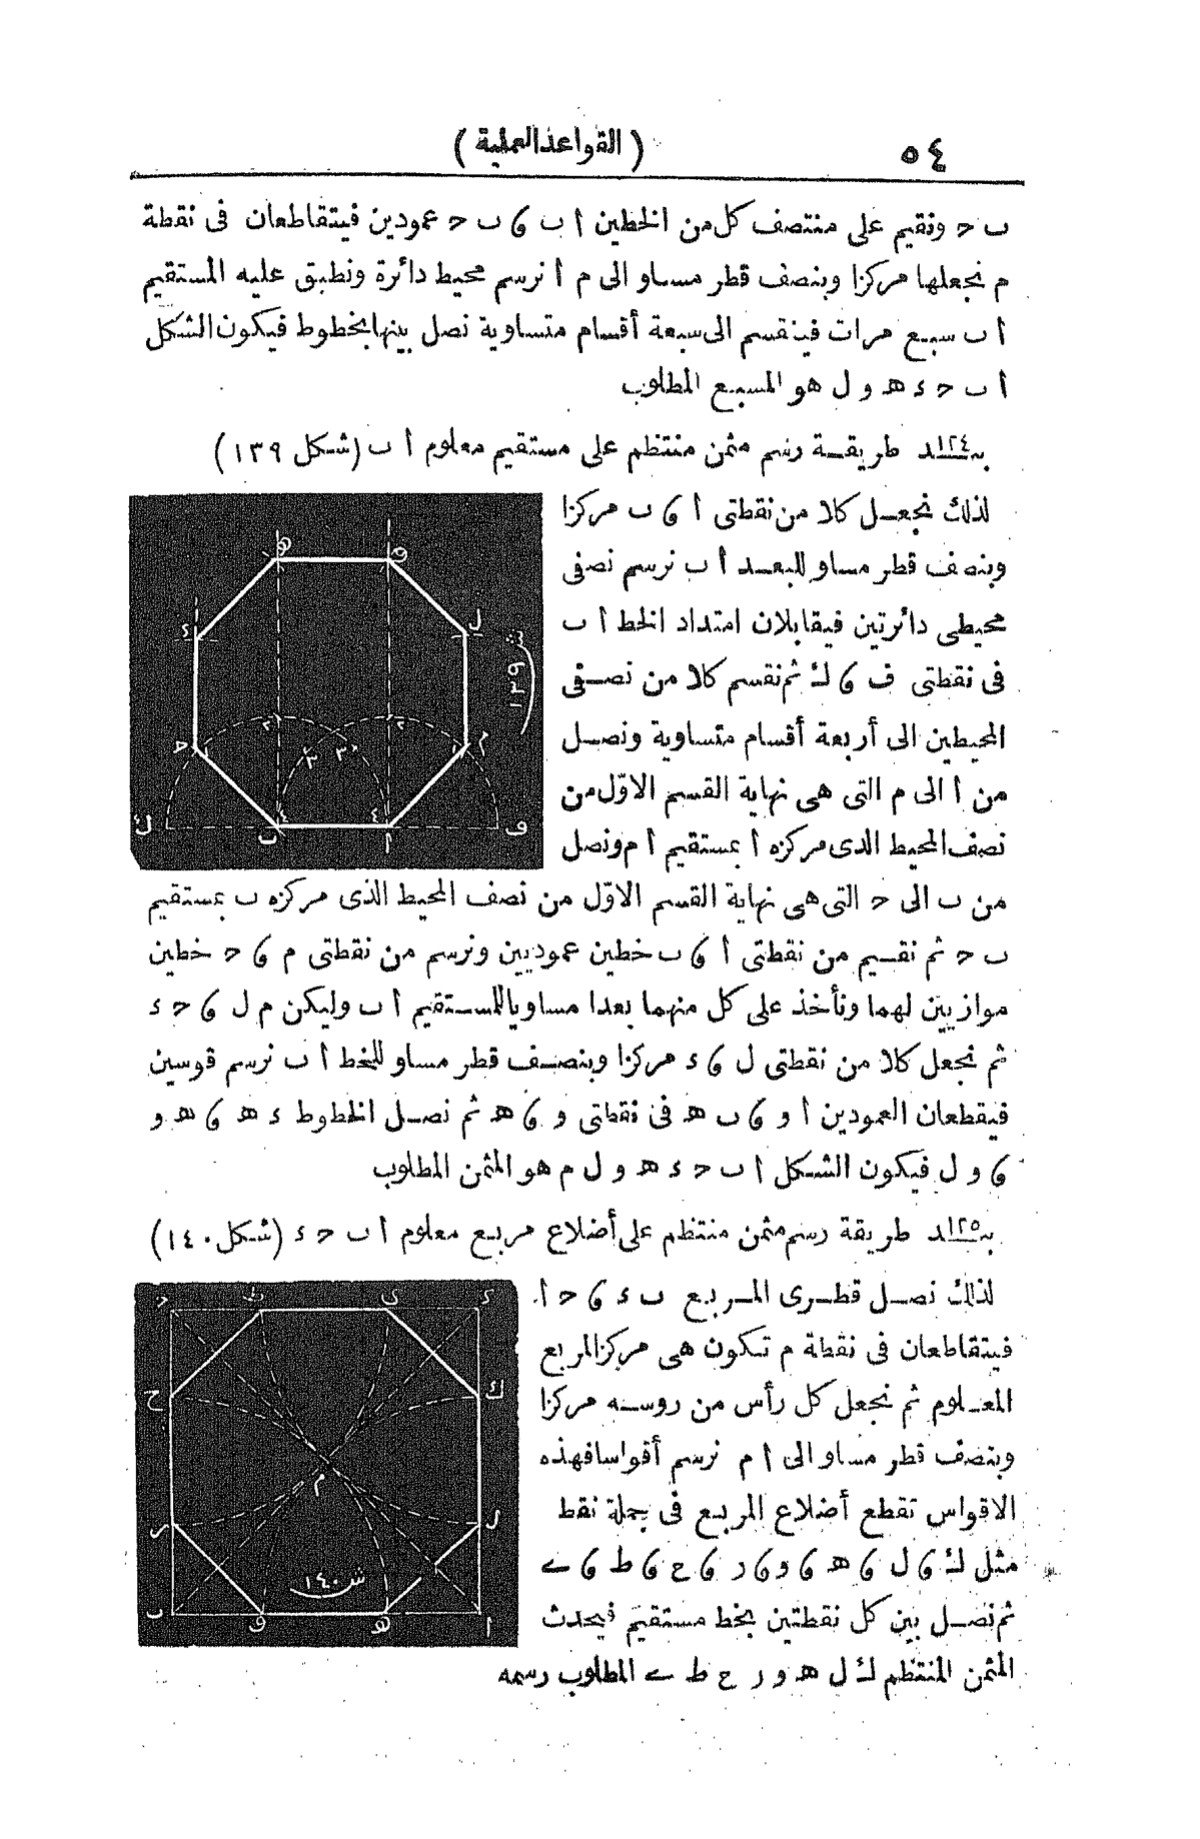 ٥٤ (القواعد العملية)
ب ح ونقيم على منتصف كل من الخطين أ ب و ب ح عمودين فيتقاطعان فى نقطة
م نجعلها مركزا وبنصف قطر مساو الى م أ نرسم محيط دائرة ونطبق عليه المستقيم
أ ب سبع مرات فينقسم الى سبعة أقسام متساوية نصل بينها بخطوط فيكون الشكل
أ ب ح ء هـ و ل هو المسبع المطلوب
بـ١٢٤ـد طريقة رسم مثمن منتظم على مستقيم معلوم أ ب (شكل ١٣٩)
لذلك نجعل كلا من نقطتى أ و ب مركزا
وبنصف قطر مساو للبعد أ ب نرسم نصفى
محيطى دائرتين فيقابلان امتداد الخط أ ب
فى نقطتى ف و ك ثم نقسم كلا من نصفى
المحيطين الى أربعة أقسام متساوية ونصل
من أ الى م التى هى نهاية القسم الاوّل من
نصف المحيط الذى مركزه أ بمستقيم أ م ونصل
من ب الى ح التى هى نهاية القسم الاوّل من نصف المحيط الذى مركزه ب بمستقيم
ب ح ثم نقيم من نقطتى أ و ب خطين عموديين ونرسم من نقطتى م و ح خطين
موازيين لهما ونأخذ على كل منهما بعدا مساويا للمستقيم أ ب وليكن م ل و ح ء
ثم نجعل كلا من نقطتى ل و ء مركزا وبنصف قطر مساو للخط أ ب نرسم قوسين
فيقطعان العمودين أ و و ب هـ فى نقطتى و و هـ ثم نصل الخطوط ء هـ و هـ و
و و ل فيكون الشكل أ ب ح ء هـ و ل م هو المثمن المطلوب
بـ١٢٥ـد طريقة رسم مثمن منتظم على أضلاع مربع معلوم أ ب ح ء (شكل ١٤٠)
لذلك نصل قطرى المربع ب ء و ح أ
فيتقاطعان فى نقطة م تكون هى مركز المربع
المعلوم ثم نجعل كل رأس من روسه مركزا
وبنصف قطر مساو الى أ م نرسم أقواسا فهذه
الاقواس تقطع أضلاع المربع فى جملة نقط
مثل ك و ل و هـ و و و ر و ح و ط و ى
ثم نصل بين كل نقطتين بخط مستقيم فيحدث
المثمن المنتظم ك ل هـ و ر ح ط ى المطلوب رسمه
ش ١٣٩
ش ١٤٠